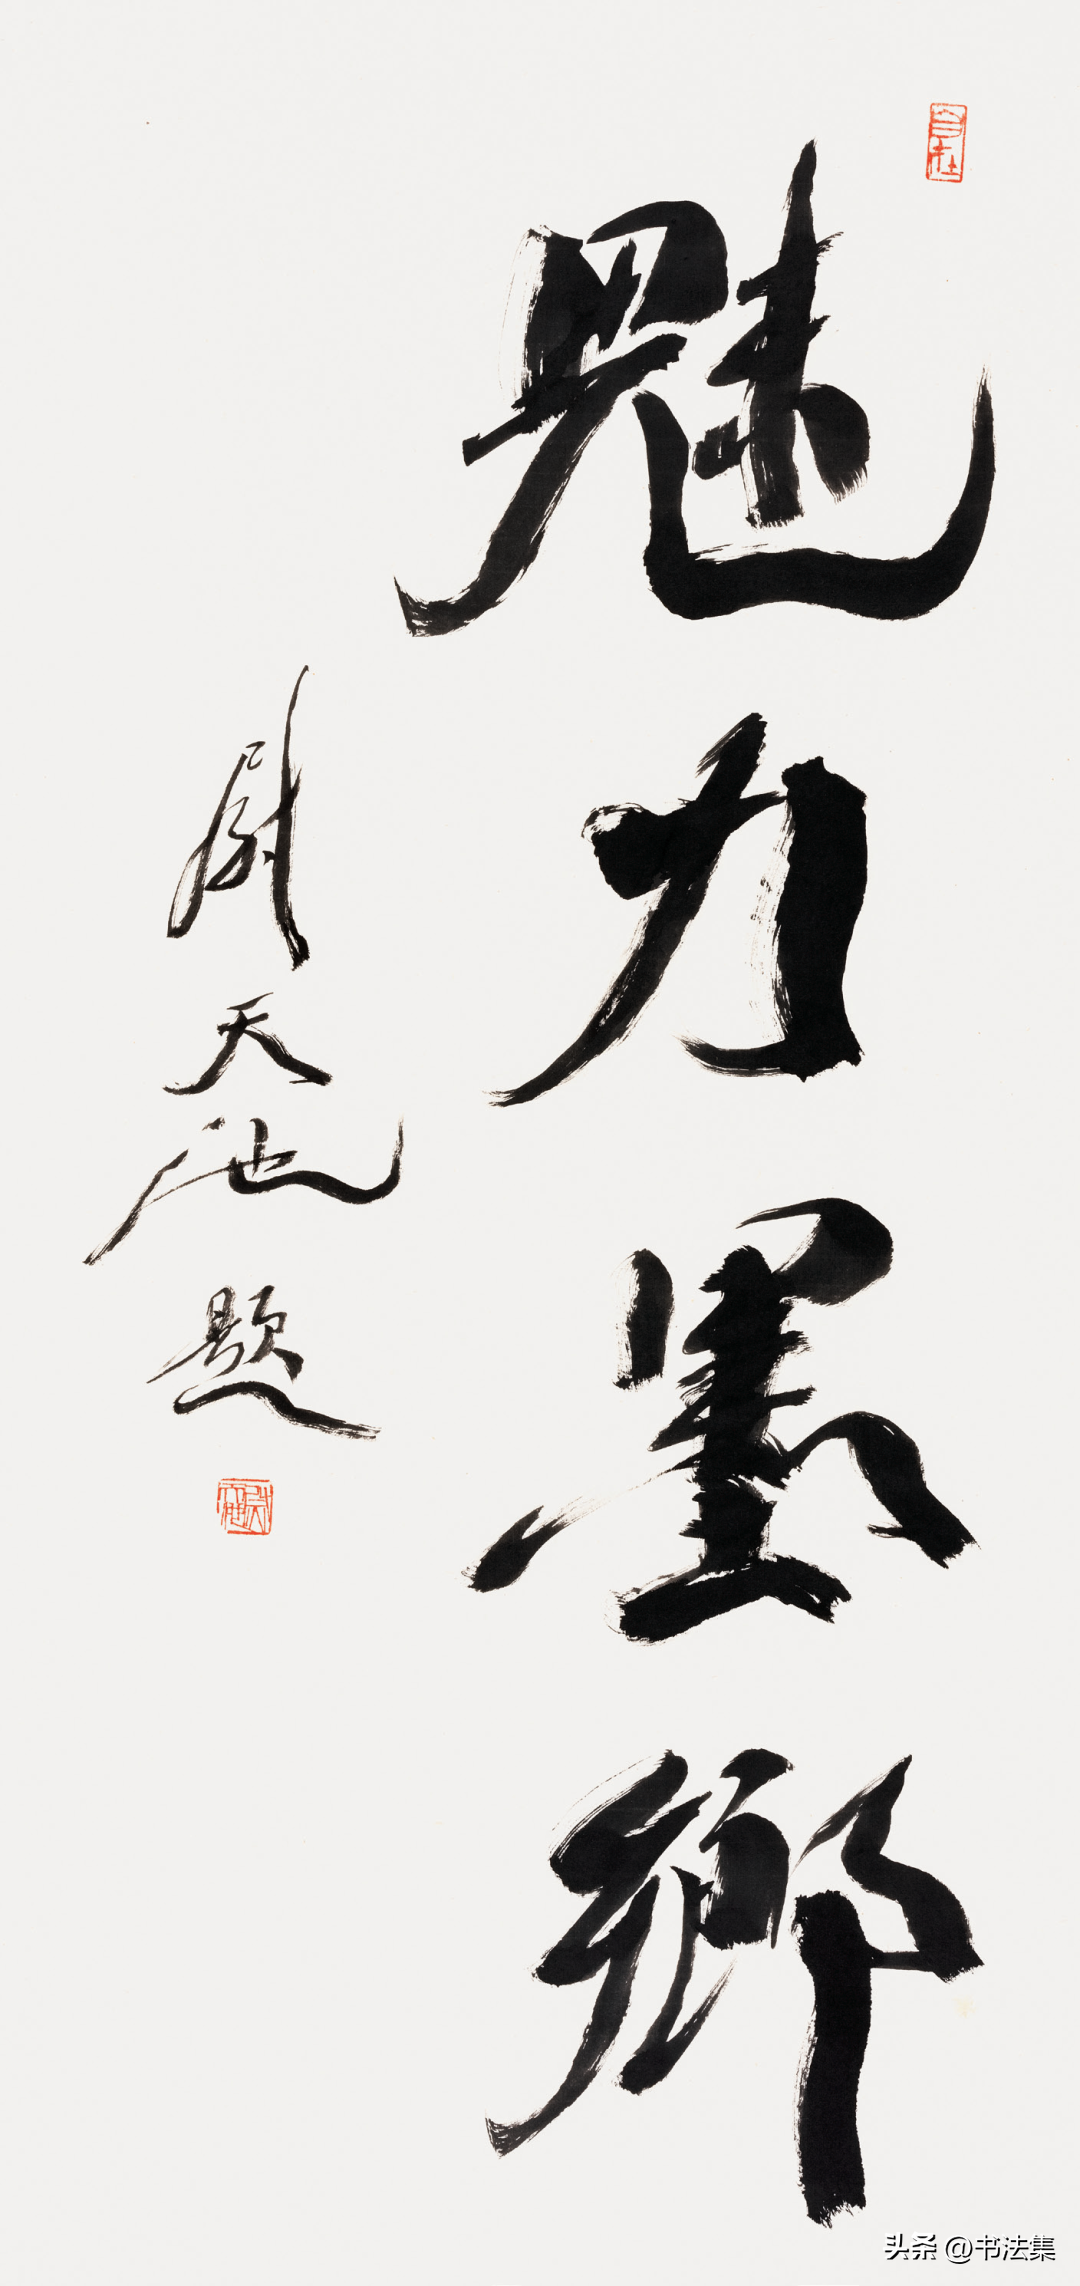 魅力墨鄉
尉天池題
头条 @书法集